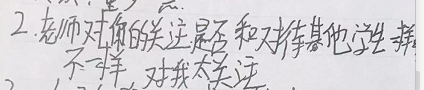 2.老师对你的关注是否和对待其他学生一样
不一样 对我太关注